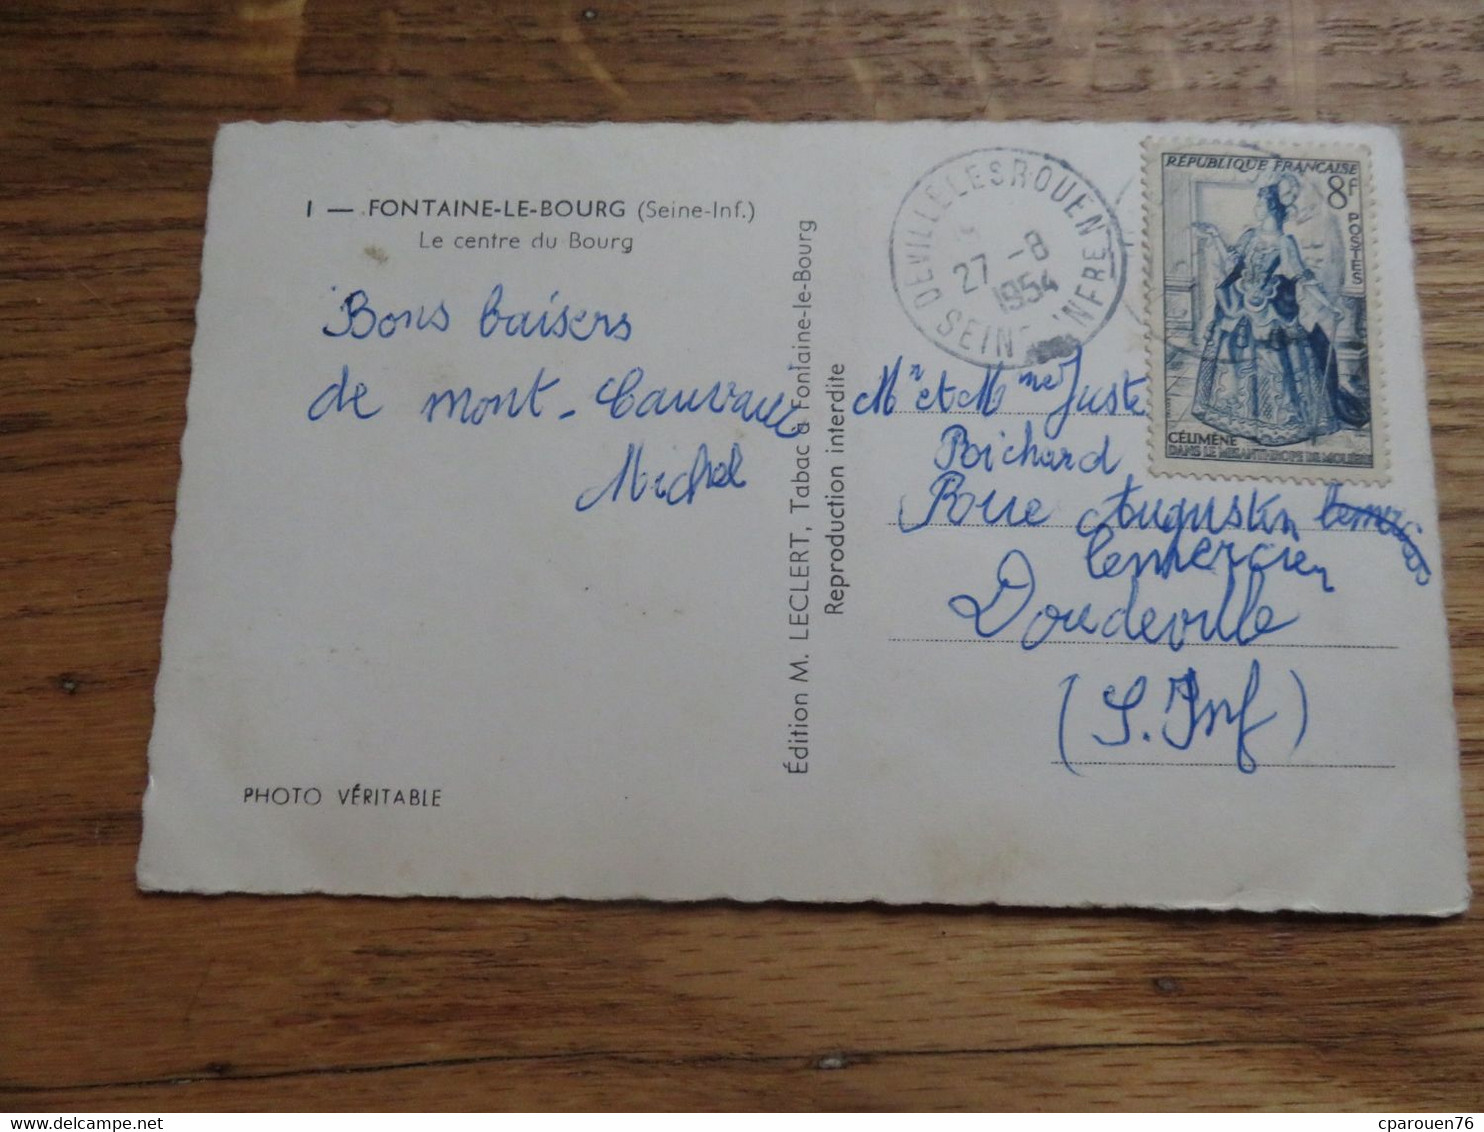 1 — FONTAINE-LE-BOURG (Seine-Inf.)
Le centre du Bourg
Bons baisers
de mont-Cauvaire
Michel
PHOTO VÉRITABLE
Édition M. LECLERT, Tabac à Fontaine-le-Bourg
Reproduction interdite
DEVILLE LES ROUEN
27 -8
1954
SEINE INFRE
RÉPUBLIQUE FRANÇAISE
8F
POSTES
CÉLIMÈNE
DANS LE MISANTHROPE DE MOLIÈRE
Mr et Mme Juste
Boichard
Rue Augustin
lemercier
Doudeville
(S. Inf)
cparouen76